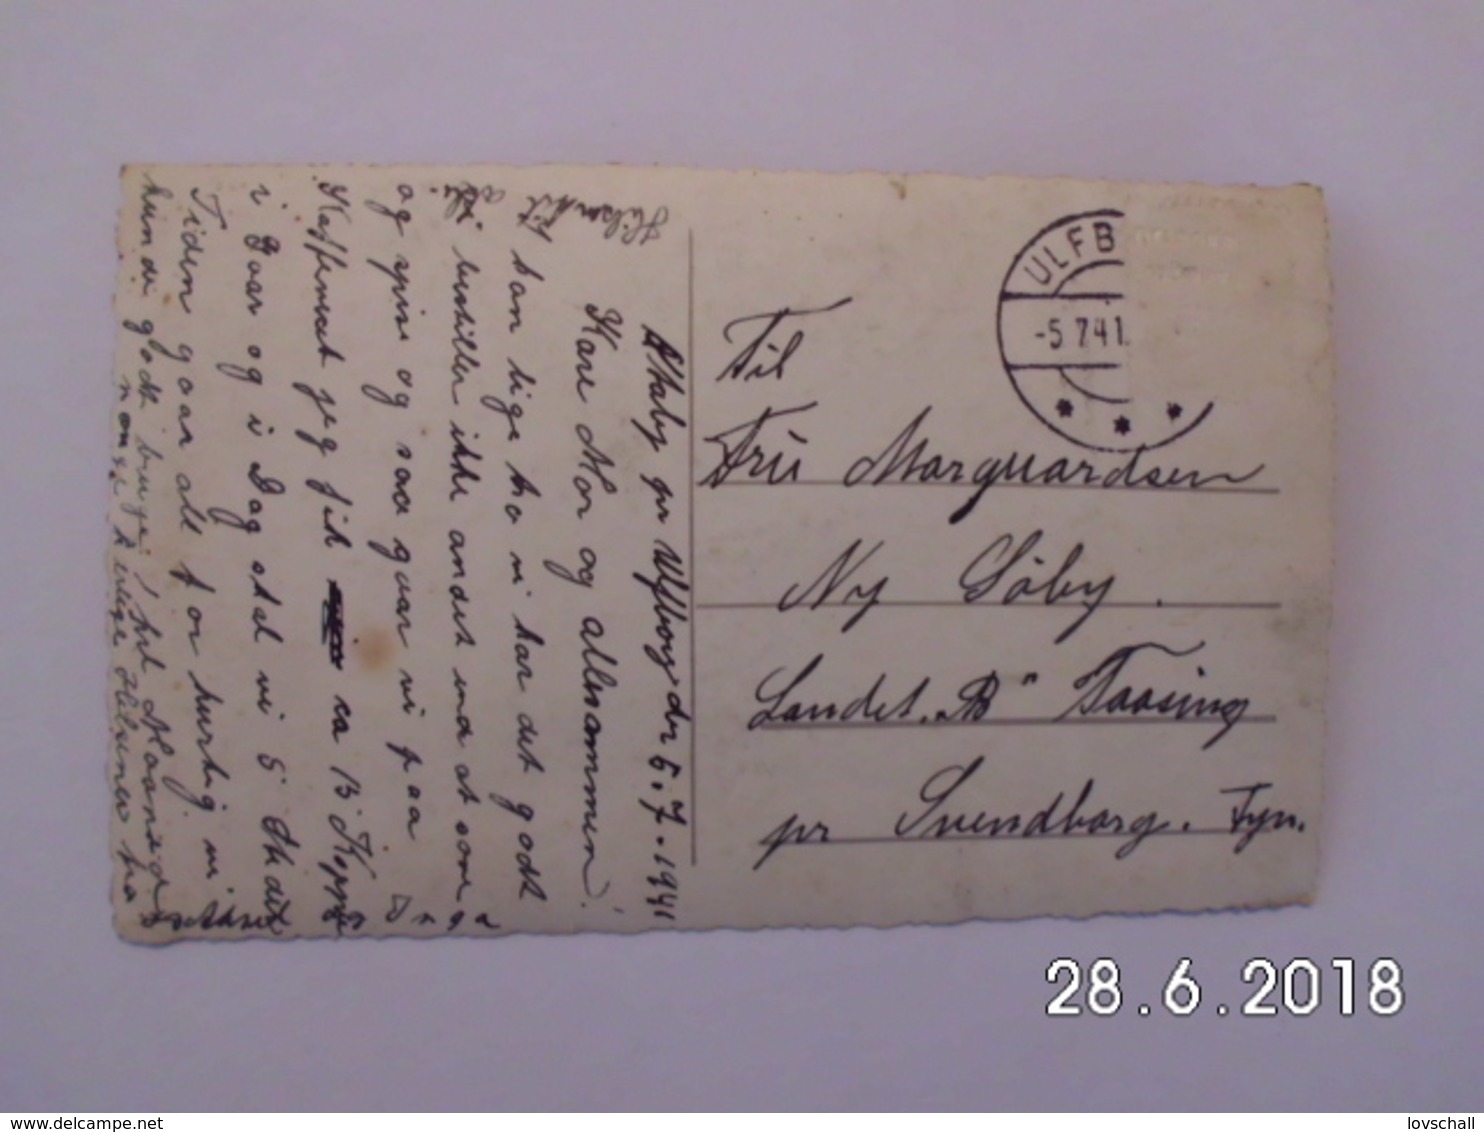 Staby pr Ulfborg den 5.7.1941
Kære Mor og allesammen!
kan lige ha vi har det godt
vi bestiller ikke andet end at sove
og spise og saa gaar vi paa
Kaffevisit jeg fik ca 13 Kopper
i Gaar og i Dag skal vi
Tiden gaar alt for hurtig vi
kunde godt bruge
mange kærlige Hilsner fra
Hilsen
ULFB
-5.7.41.
Til
Fru Marquardsen
Ny Söby.
Landet „B" Taasing
pr Svendborg. Fyn.
28.6.2018
www.delcampe.net
lovschall